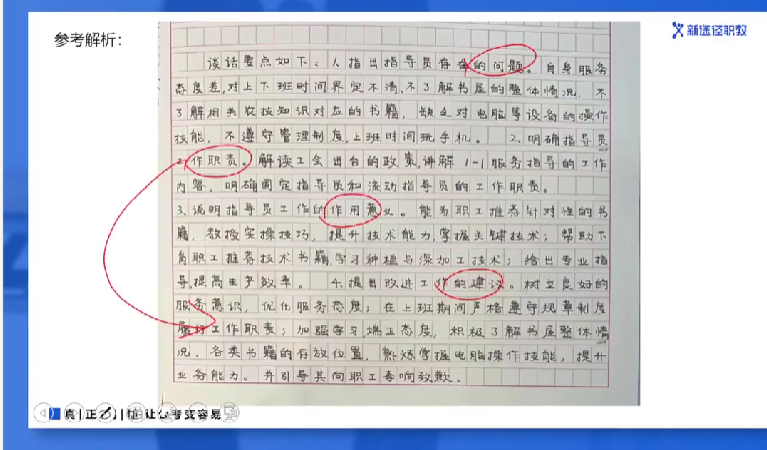 参考解析：
新途径职教
谈话要点如下：1.指出指导员存在的问题。自身服务
态度差,对上下班时间界定不清,不了解书屋的整体情况，不
了解相关农技知识对应的书籍，缺乏对电脑等设备的操作
技能，不遵守管理制度,上班时间玩手机。 2、明确指导员
工作职责。解读工会出台的政策,讲解1-1服务指导的工作
内容，明确固定指导员和流动指导员的工作职责。
3、说明指导员工作的作用意义。能为职工推荐针对性的书
籍，教授实操技巧，提升技术能力,掌握关键技术；帮助下
岗职工推荐技术书籍学习种植与深加工技术；给出专业指
导,提高生产效率。 4.提出改进工作的建议。树立良好的
服务意识，优化服务态度；在上班期间严格遵守规章制度
履行工作职责；加强学习端正态度，积极了解书屋整体情
况、各类书籍的存放位置，熟练掌握电脑操作技能，提升
业务能力。并引导其向职工李响致歉。
让公考变容易